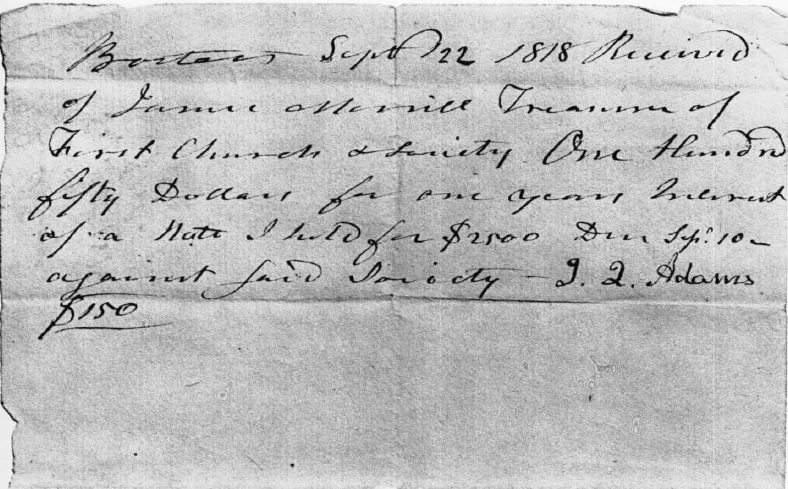 Boston Sept 22 1818 Received
of James Morrill Treasurer of
First Church & Society One Hundrd
fifty Dollars for one years Interest
of a Note I hold for $2500 Due Sep. 10
against said Society - J. Q. Adams
$150